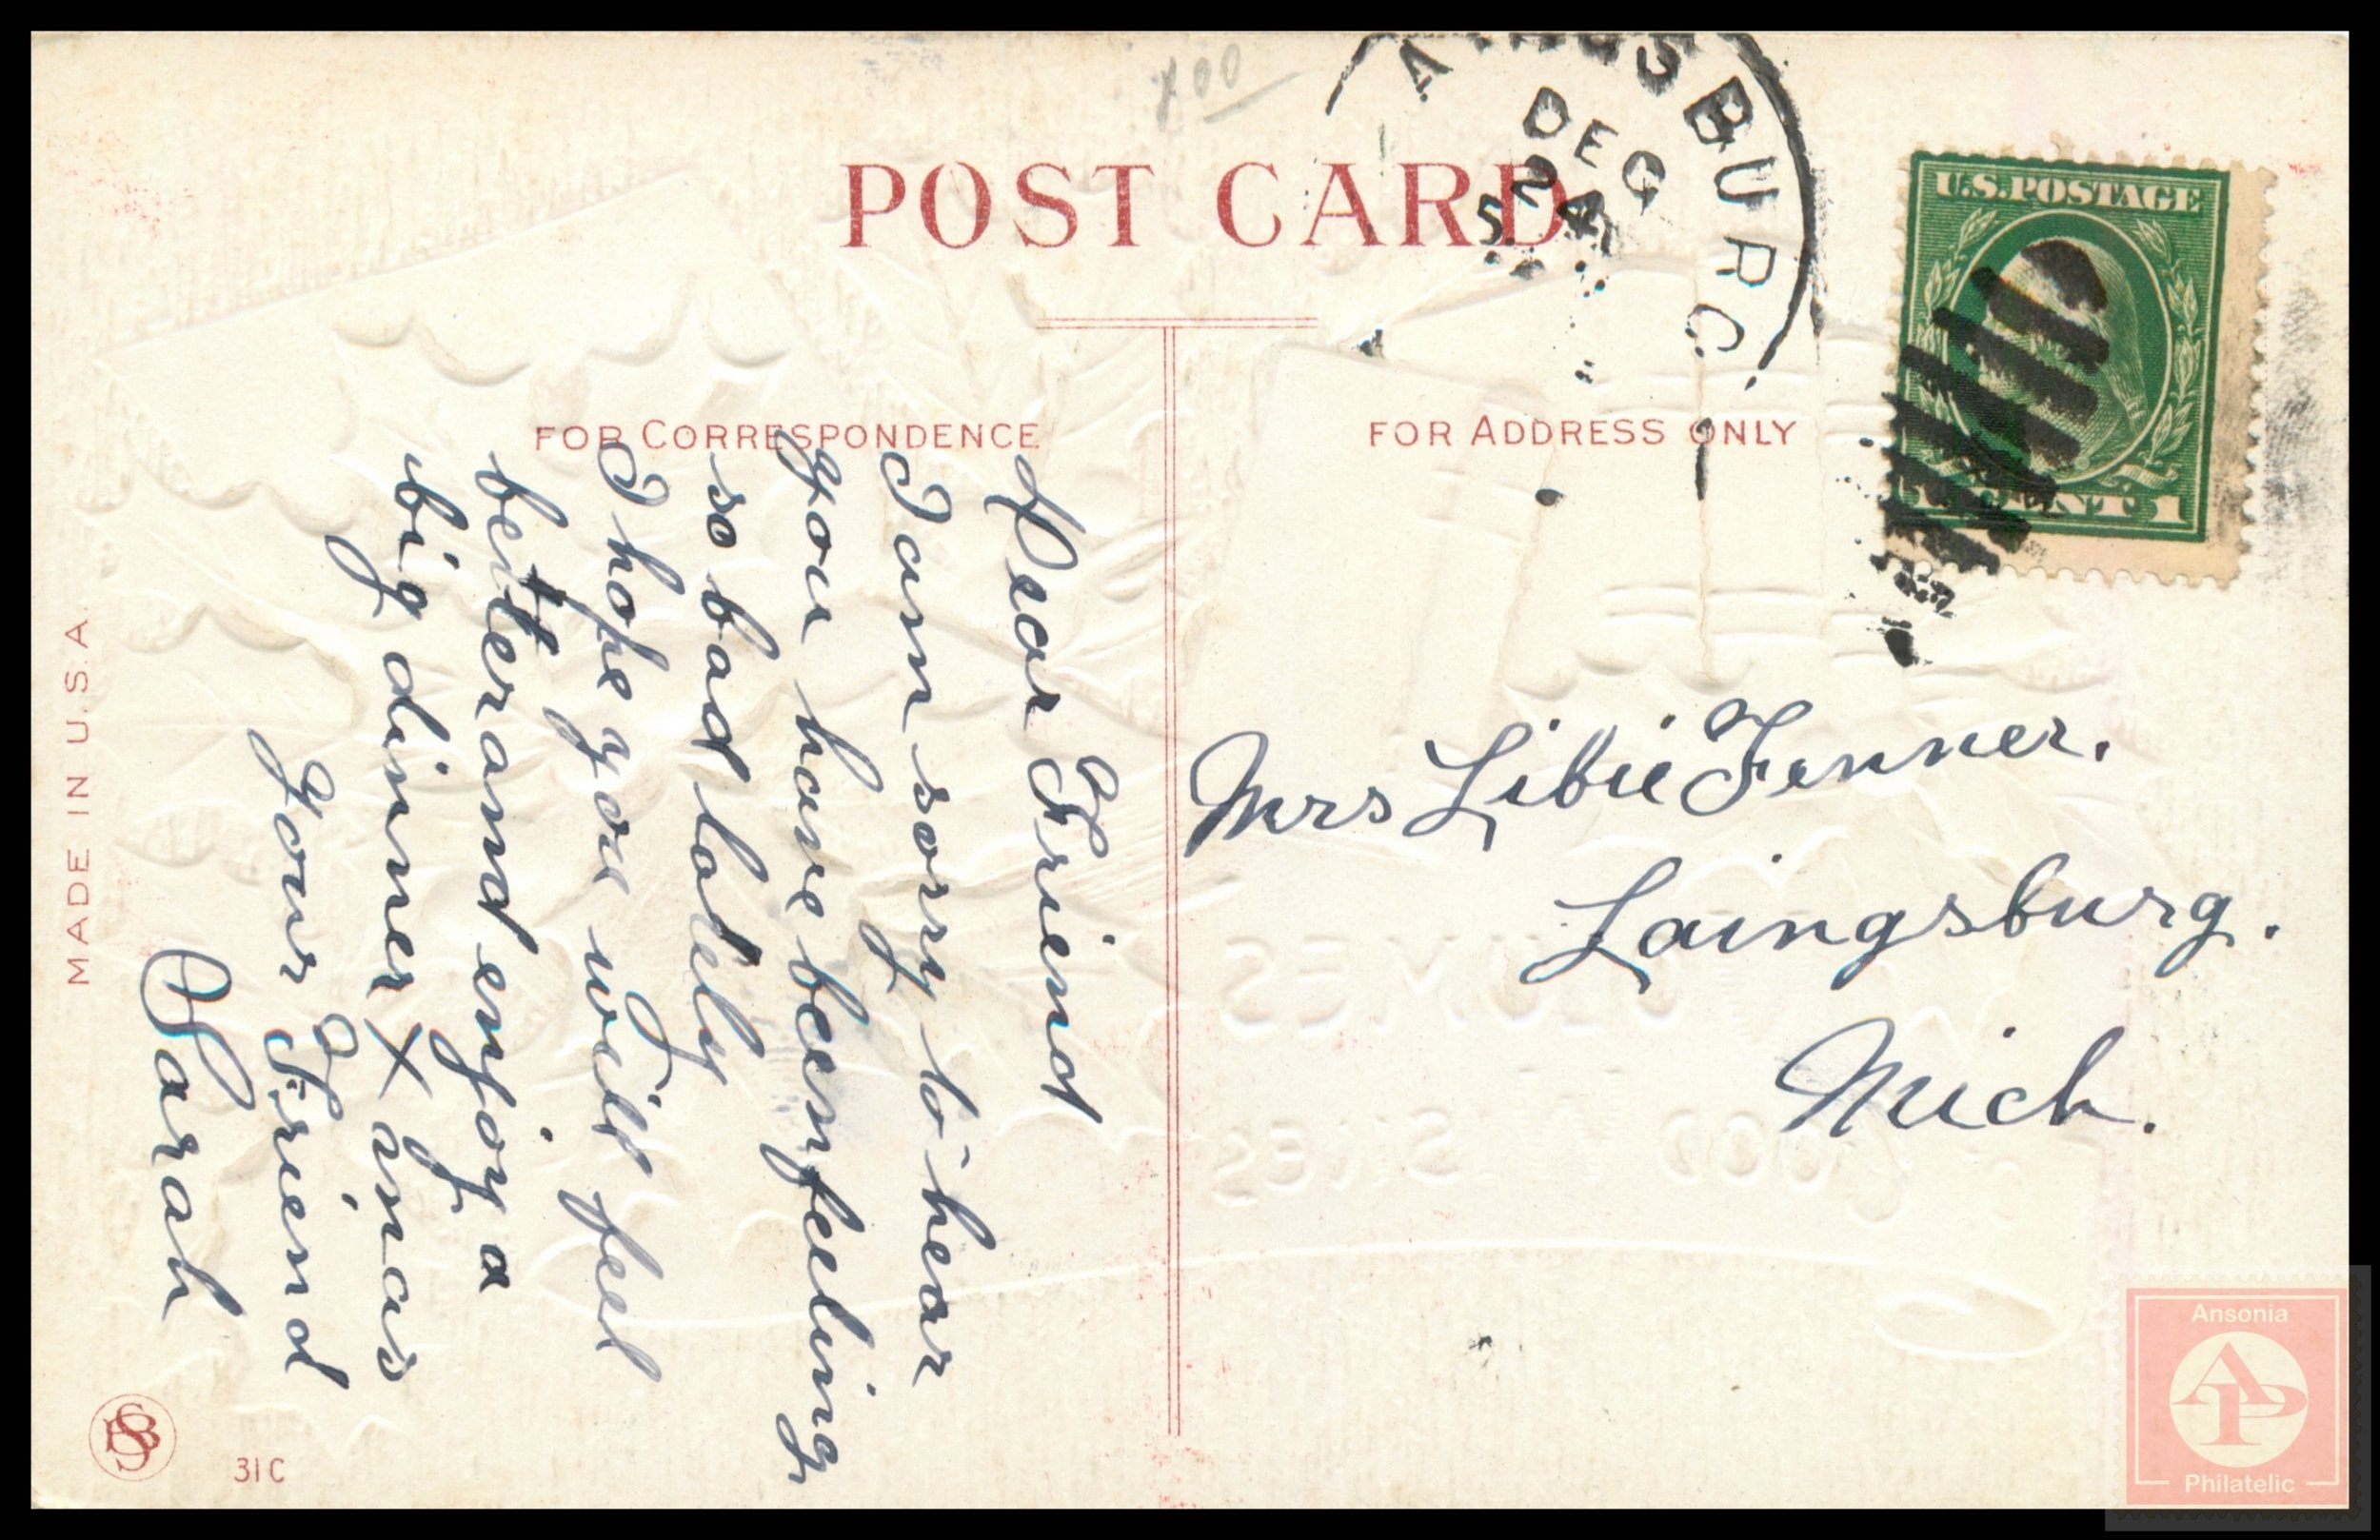 POST CARD
FOR CORRESPONDENCE
FOR ADDRESS ONLY
DEC
24
5
U.S. POSTAGE
CENT 1
Dear Friend
I am sorry to hear
you have been feeling
so bad lately
I hope you will feel
better and enjoy a
big dinner Xmas
your Friend
Sarah
Mrs Libie Fenner.
Laingsburg.
Mich.
MADE IN U.S.A.
31C
400
Ansonia
AP
Philatelic